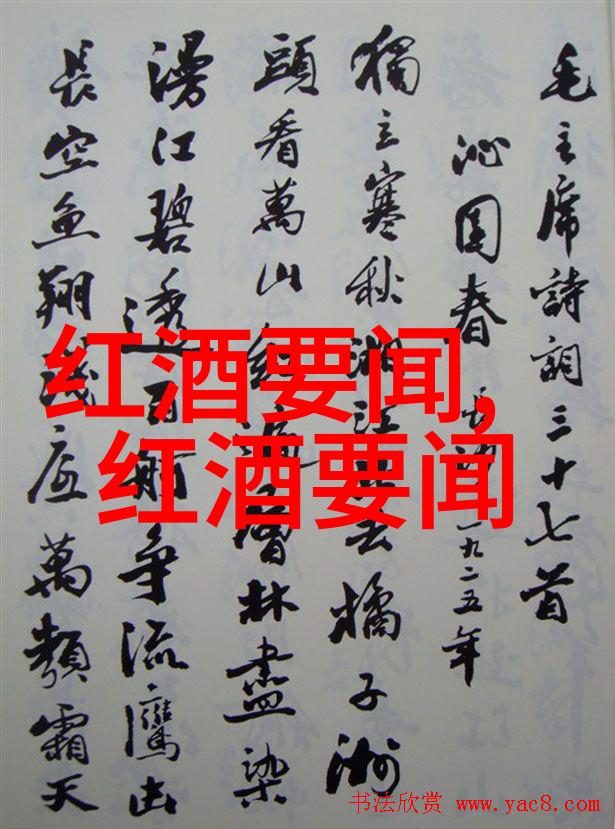 毛主席詩詞三十七首
沁園春 長沙 一九二五年
獨立寒秋湘江北去橘子洲
頭看萬山紅遍層林盡染
漫江碧透百舸争流鷹击
長空魚翔淺底萬類霜天
红酒要闻,
红酒要闻
书法欣赏 www.yac8.com